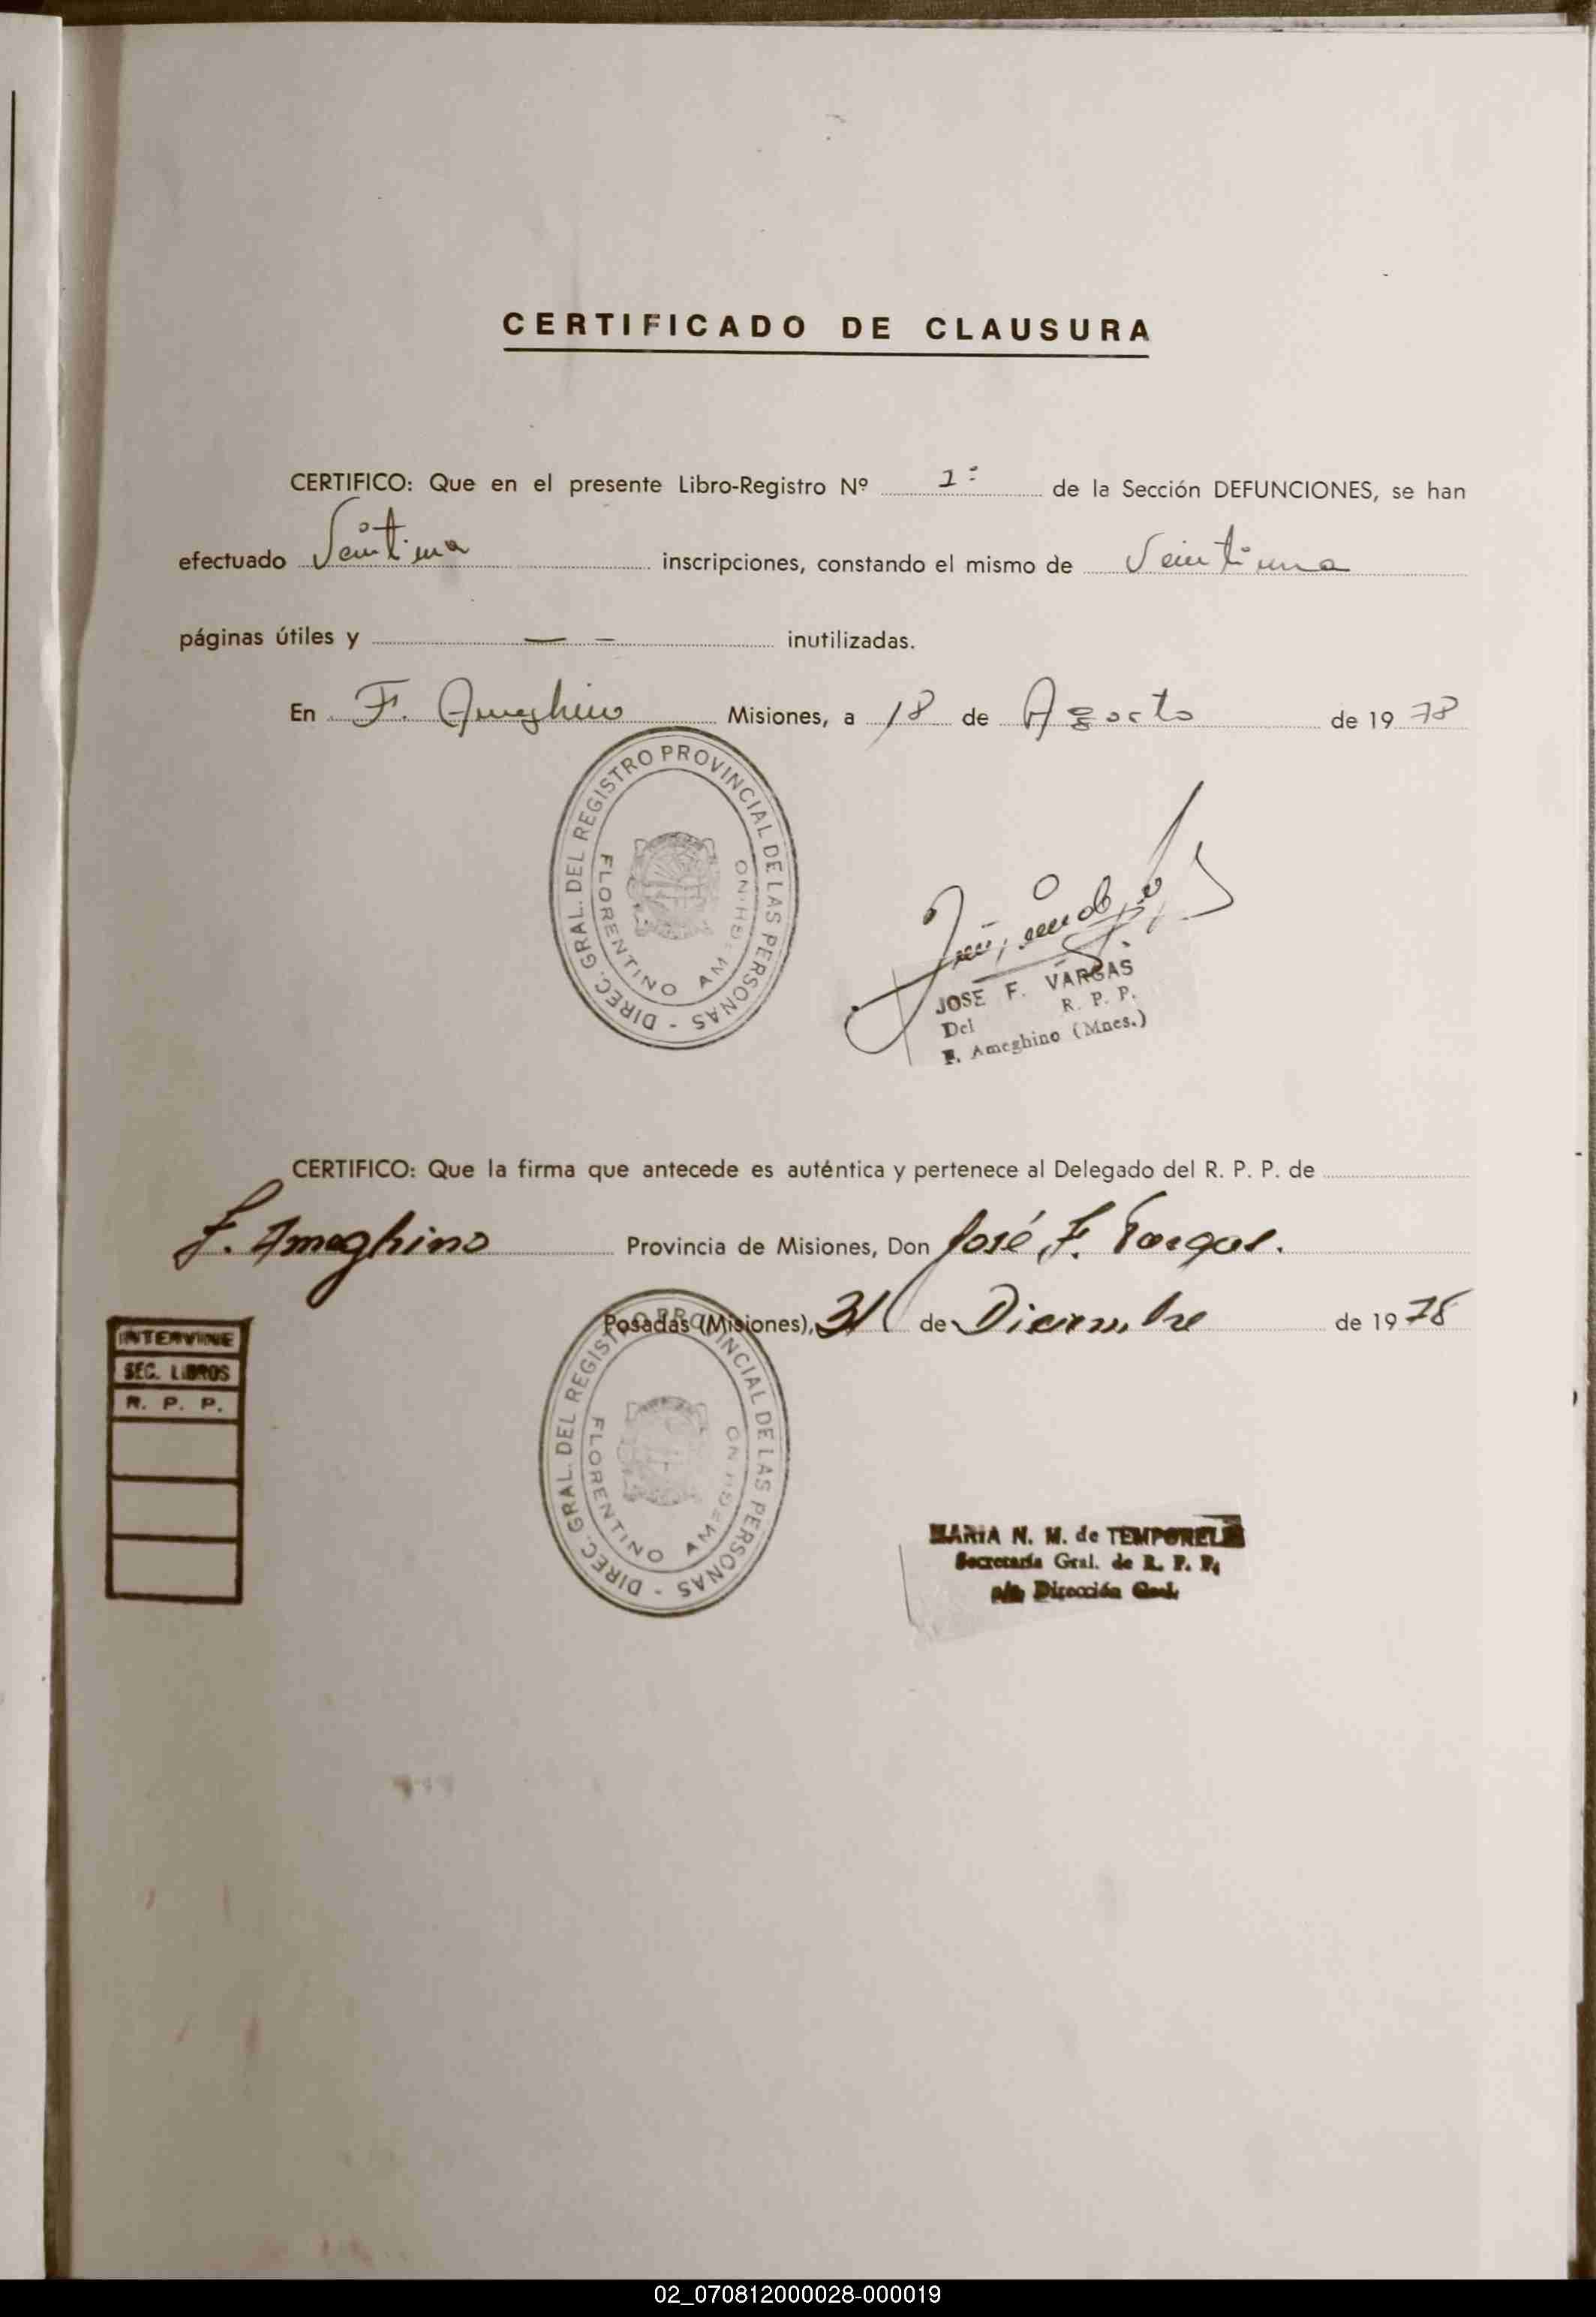 CERTIFICADO DE CLAUSURA
CERTIFICO: Que en el presente Libro-Registro Nº 1º de la Sección DEFUNCIONES, se han
efectuado Veintiuna inscripciones, constando el mismo de Veintiuna
páginas útiles y — – inutilizadas.
En F. Ameghino Misiones, a 18 de Agosto de 1978
DIREC. GRAL. DEL REGISTRO PROVINCIAL DE LAS PERSONAS -
FLORENTINO AMEGHINO
JOSE F. VARGAS
Del R. P. P.
F. Ameghino (Mnes.)
CERTIFICO: Que la firma que antecede es auténtica y pertenece al Delegado del R. P. P. de
F. Ameghino Provincia de Misiones, Don José F. Vargas.
Posadas (Misiones), 31 de Diciembre de 1978
INTERVINE
SEC. LIBROS
R. P. P.
DIREC. GRAL. DEL REGISTRO PROVINCIAL DE LAS PERSONAS -
FLORENTINO AMEGHINO
MARIA N. M. de TEMPORELI
Secretaría Gral. de R. P. P.
a/c Dirección Gral.
02_070812000028-000019